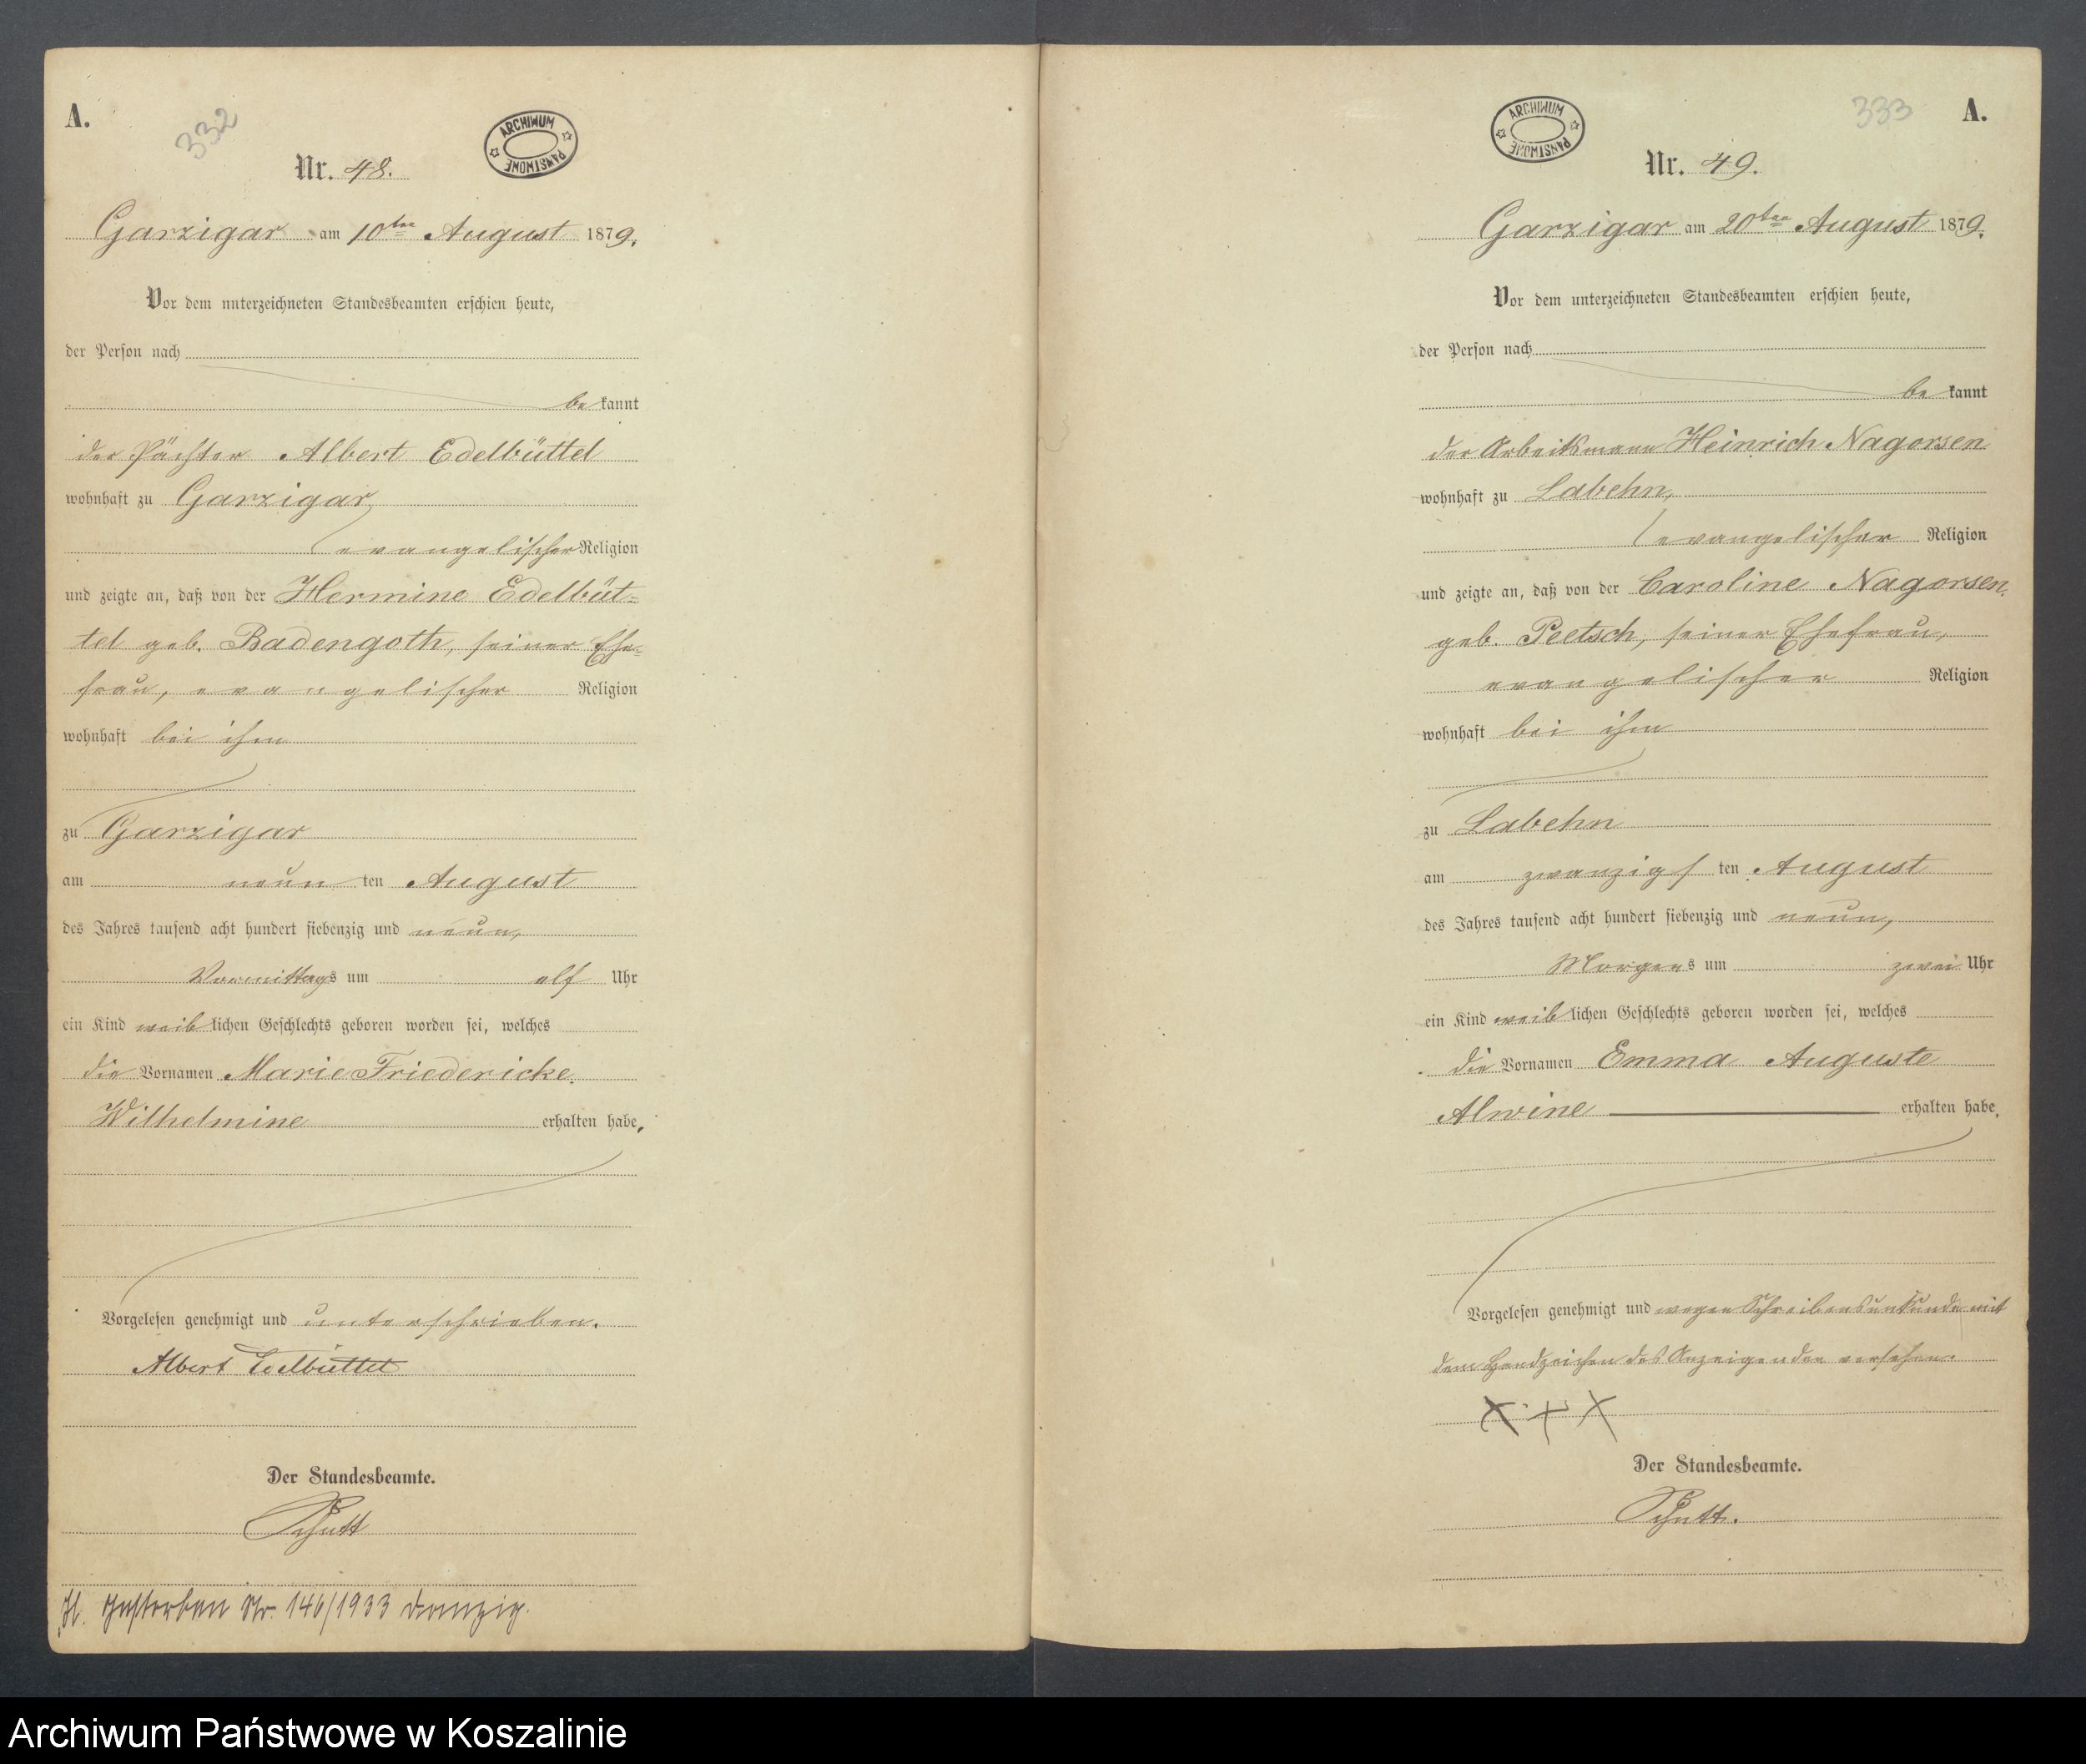 A.
332
ARCHIWUM PAŃSTWOWE
Nr. 48.
Garzigar am 10ten August 1879.
Vor dem unterzeichneten Standesbeamten erschien heute,
der Person nach
be kannt
der Pächter Albert Edelbüttel
wohnhaft zu Garzigar,
evangelischer Religion
und zeigte an, daß von der Hermine Edelbüt-
tel geb. Badengoth, seiner Ehe-
frau, evangelischer Religion
wohnhaft bei ihm
zu Garzigar
am neun ten August
des Jahres tausend acht hundert siebenzig und neun,
Vormittags um elf Uhr
ein Kind weib lichen Geschlechts geboren worden sei, welches
die Vornamen Marie Friedericke
Wilhelmine erhalten habe.
Vorgelesen genehmigt und unterschrieben.
Albert Edelbüttel
Der Standesbeamte.
Schutt
Gestorben Nr. 146/1933 Danzig.
333
A.
ARCHIWUM PAŃSTWOWE
Nr. 49.
Garzigar am 20ten August 1879.
Vor dem unterzeichneten Standesbeamten erschien heute,
der Person nach
be kannt
der Arbeitsmann Heinrich Nagorsen
wohnhaft zu Labehn,
evangelischer Religion
und zeigte an, daß von der Caroline Nagorsen,
geb. Peetsch, seiner Ehefrau,
evangelischer Religion
wohnhaft bei ihm
zu Labehn
am zwanzigs ten August
des Jahres tausend acht hundert siebenzig und neun,
Morgens um zwei Uhr
ein Kind weib lichen Geschlechts geboren worden sei, welches
die Vornamen Emma Auguste
Alwine erhalten habe.
Vorgelesen genehmigt und wegen Schreibensunkunde mit
dem Handzeichen des Anzeigenden versehen.
X + X
Der Standesbeamte.
Schutt.
Archiwum Państwowe w Koszalinie